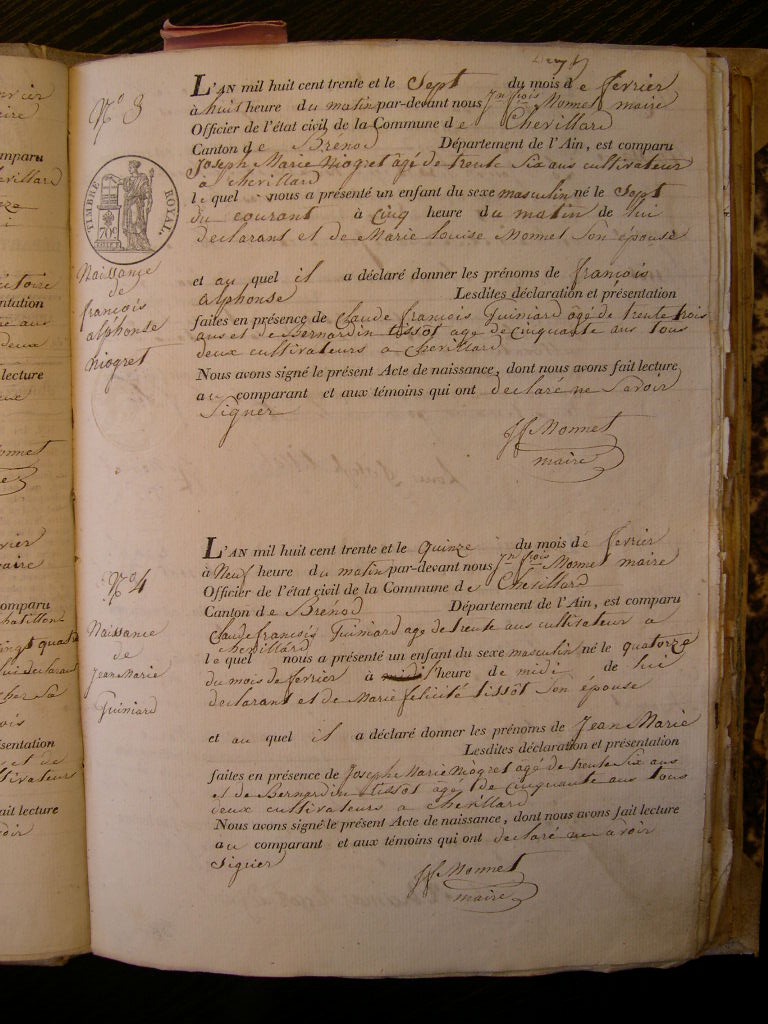 N.o 3
TIMBRE ROYAL
70c
Naissance
de
françois
alphonse
Niogret
L'AN mil huit cent trente et le Sept du mois de fevrier
à huit heure du matin par-devant nous Jn fcois Monnet maire
Officier de l'état civil de la Commune de Chevillard
Canton de Brénod Département de l'Ain, est comparu
Joseph Marie Niogret agé de trente Six ans cultivateur
à Chevillard
lequel nous a présenté un enfant du sexe masculin né le Sept
du courant à cinq heure du matin de lui
declarant et de Marie Louise Monnet Son épouse
et au quel il a déclaré donner les prénoms de françois
alphonse Lesdites déclaration et présentation
faites en présence de Claude francois Guiniard agé de trente trois
ans et de Bernardin tissot agé de cinquante ans tous
deux cultivateurs a Chevillard
Nous avons signé le présent Acte de naissance, dont nous avons fait lecture
au comparant et aux témoins qui ont declaré ne Savoir
Signer
Jf Monnet
maire
N.o 4
Naissance
de
Jean Marie
Guiniard
L'AN mil huit cent trente et le quinze du mois de fevrier
à Neuf heure du matin par-devant nous Jn fcois Monnet maire
Officier de l'état civil de la Commune de Chevillard
Canton de Brénod Département de l'Ain, est comparu
Claude francois Guiniard age de trente ans cultivateur a
Chevillard
lequel nous a présenté un enfant du sexe masculin né le quatorze
du mois de fevrier à l'heure de midi de lui
declarant et de Marie felicité tissot Son épouse
et au quel il a déclaré donner les prénoms de Jean Marie
Lesdites déclaration et présentation
faites en présence de Joseph Marie Niogret agé de trente Six ans
et de Bernardin tissot agé de cinquante ans tous
deux cultivateurs a Chevillard
Nous avons signé le présent Acte de naissance, dont nous avons fait lecture
au comparant et aux témoins qui ont declaré ne Savoir
Signer
Jf Monnet
maire